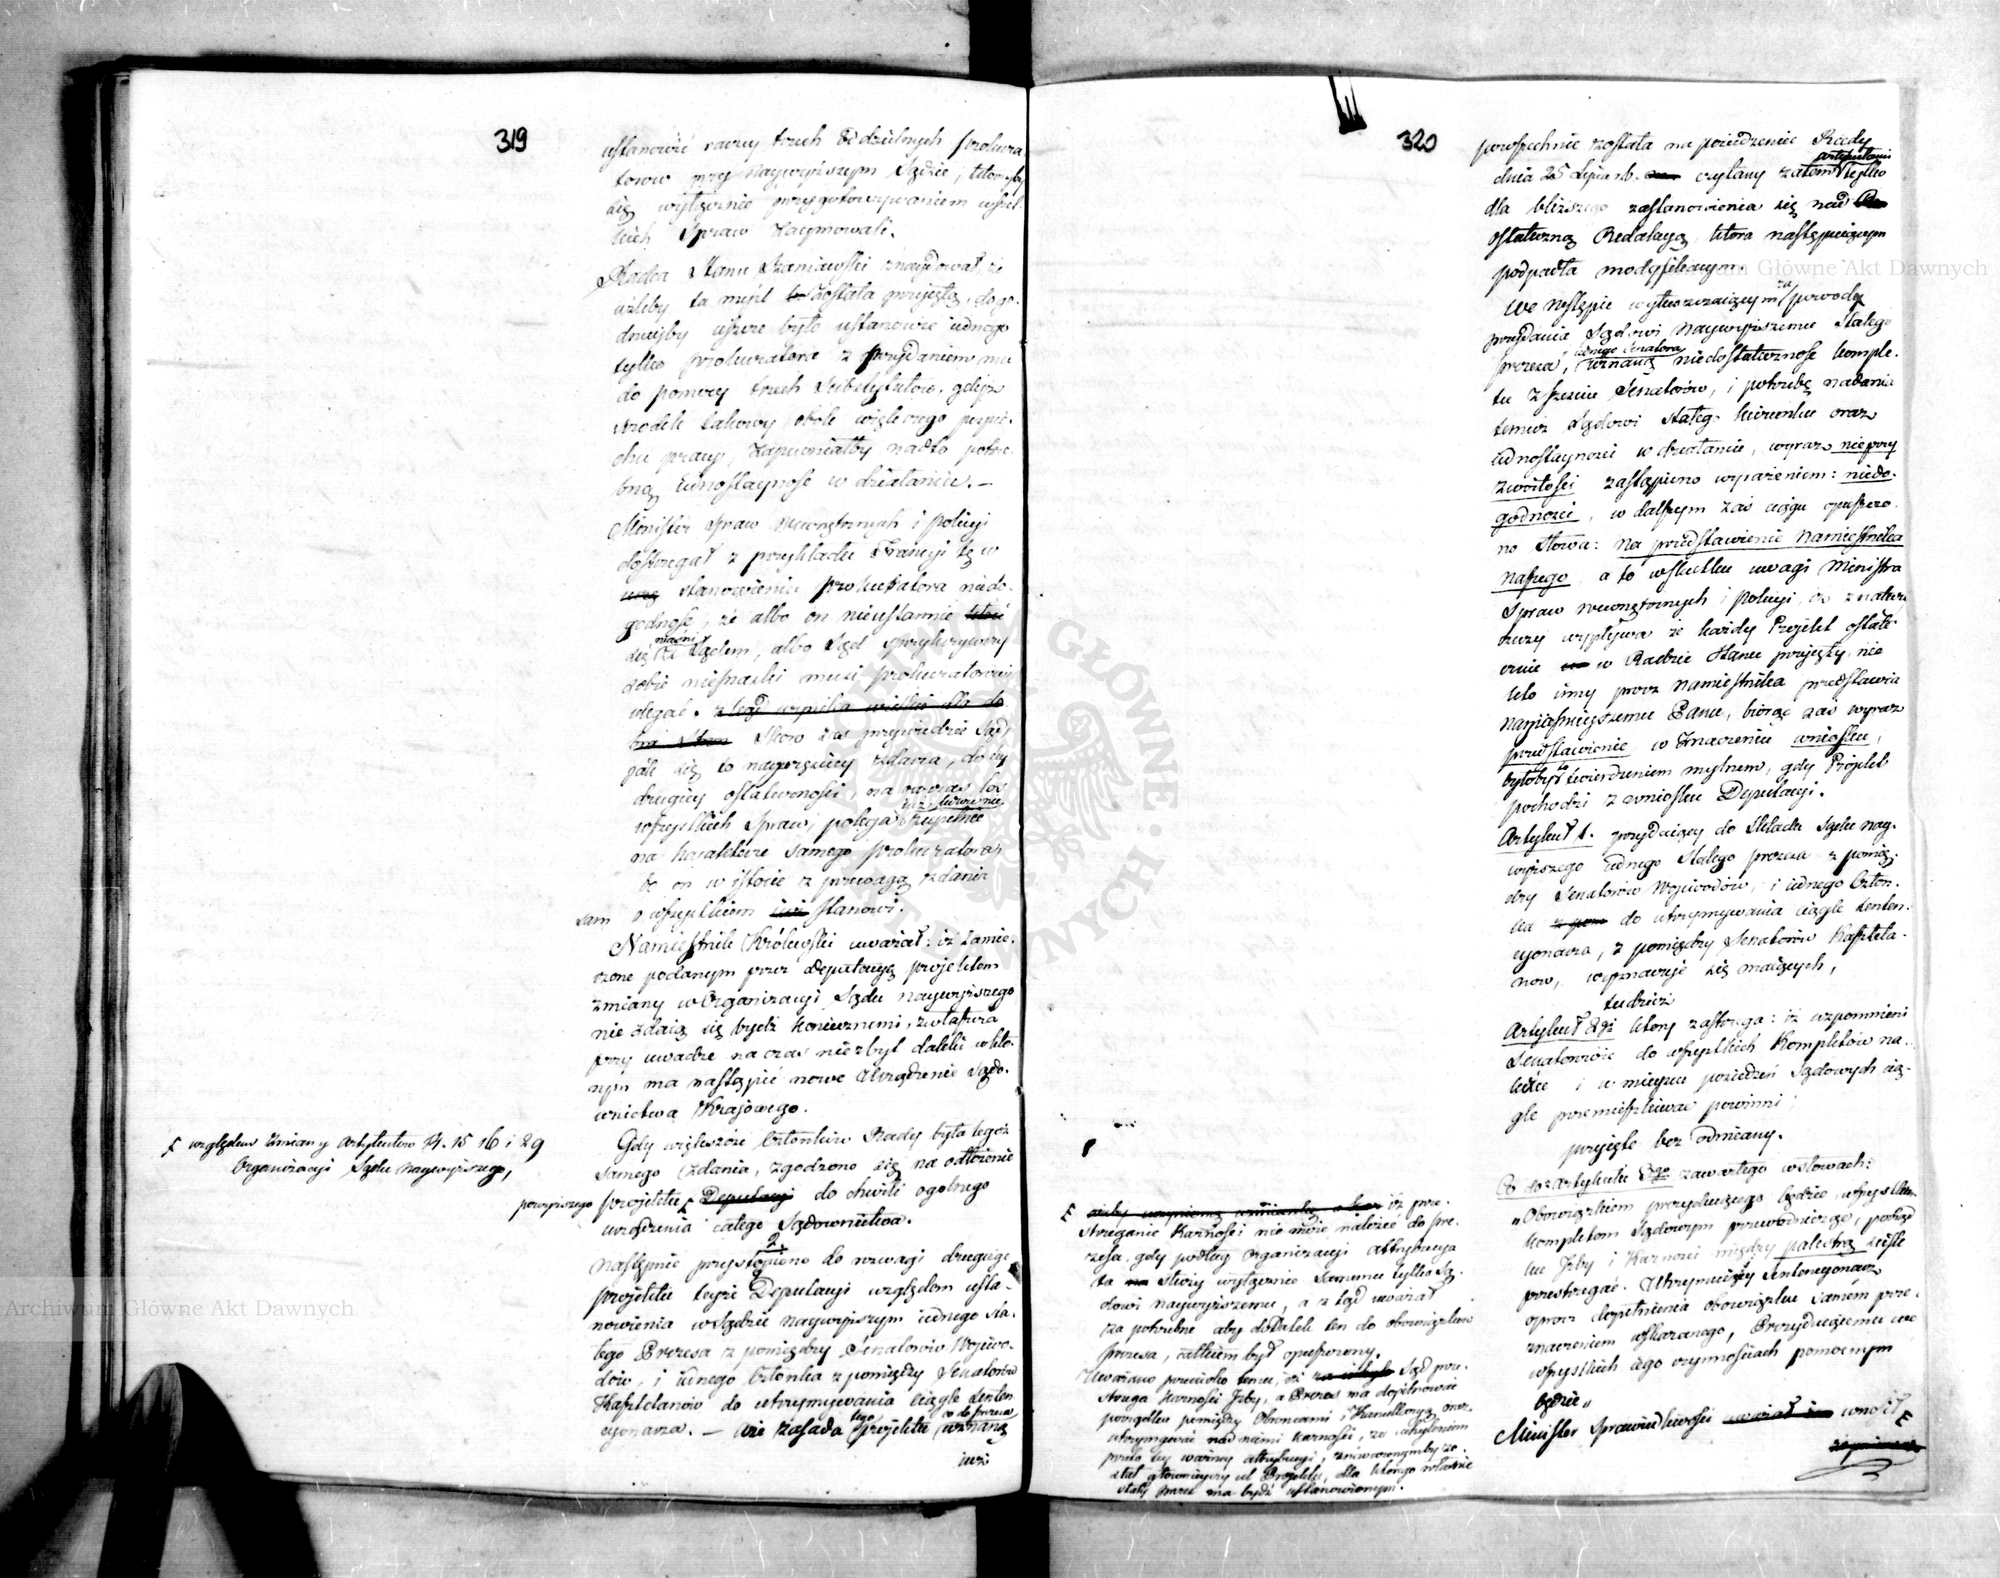 319
ustanowić raczey trzech oddzielnych prokura
torow przy Naywyższym Sądzie, którzyby
się wyłącznie przygotowywaniem wszel-
kich Spraw zaymowali.
Radca Stanu Szaniawski znaydował, że
gdyby ta myśl została przyiętą, dogo-
dnieyby ieszcze było ustanowić iednego
tylko prokuratora z przydaniem mu
do pomocy trzech Substytutów, gdyż
środek takowy obok większego pospie-
chu pracy, zapewniałby nadto potrze-
bną iednostayność w działaniu. –
Minister Spraw Wewnętrznych i Policyi
dostrzegał z przykładu Francyi tę w
stanowieniu prokuratora niedo-
godność, że albo on nieustannie
się z Sądem, albo Sąd uprzykrzywszy
sobie niesnaski musi prokuratorowi
ulegać.
Skoro zaś przywiedzie Sąd,
iak się to nayczęściey zdarza, do tey
drugiey ostateczności, na owczas los
wszystkich Spraw, polega
na charakterze samego prokuratora
bo on w istocie z przewagą zdania
sam o wszystkiem stanowi.
Namiestnik Królewski uważał: iż zamie-
rzone podanym przez Deputacyą projektem
zmiany w Organizacyi Sądu naywyższego
nie zdaią się bydź koniecznemi, zwłaszcza
przy uwadze na czas niezbyt daleki w któ-
rym ma nastąpić nowe Urządzenie Sądo-
wnictwa Krajowego.
Gdy większość Członków Rady była tegoż
samego zdania, zgodzono się na odłożenie
powyższego projektu Deputacyi do chwili ogolnego
urządzenia całego Sądownictwa.
względem zmiany Artykułow 14. 15 16 i 29
Organizacyi Sądu naywyższego,
2
Następnie przystąpiono do rozwagi drugiego
projektu teyże Deputacyi względem usta-
nowienia w Sądzie naywyższym iednego sta-
łego Prezesa z pomiędzy Senatorów Woiewo-
dów, i iednego Członka z pomiędzy Senatorów
Kasztelanów do utrzymywania ciągle Senten
cyonarza. – zasada tego projektu co do Prezesa uznaną
iuż
320
powszechnie została na posiedzeniu Rady
dnia 25 Lipca r.b. czytany zatem artykułami tylko
dla bliższego zastanowienia się nad
Ostateczną Redakcyą, ktora następuiącym
podpadła modyfikacyom.
We Wstępie wytłuszczaiącym za powody
przydania Sądowi Naywyższemu Stałego
prezesa, iednego Senatora niedostateczność komple-
tu z sześciu Senatorów, i potrzebę nadania
temuż Sądowi stałego kierunku oraz
iednostayności w działaniu, wyraz nieprzy
zwoitości zastąpiono wyrażeniem: niedo-
godności, w dalszym zaś ciągu opuszczo-
no słowa: na przedstawienie Namiestnika
Naszego, a to wskutku uwagi Ministra
Spraw wewnętrznych i Policyi, iż z natury
rzeczy wypływa że każdy Projekt ostate-
cznie w Radzie Stanu przyięty, nie
kto inny prócz Namiestnika przedstawia
Nayiaśnieyszemu Panu, biorąc zaś wyraz
przedstawienie w znaczeniu wniosku,
byłoby to twierdzeniem mylnem, gdy Projekt
pochodzi z wniosku Deputacyi.
Artykuł 1. przydaiący do Składu Sądu nay-
wyższego iednego Stałego prezesa z pomię-
dzy Senatorów Woiewodów, i iednego Człon-
ka do utrzymywania ciągle Senten-
cyonarza, z pomiędzy Senatorów Kasztela-
now, wyznaczyć się maiących,
tudzież
Artykuł 2gi który zastrzega: iż wzpomnieni
Senatorowie do wszystkich Kompletów na-
leżeć i w mieyscu posiedzeń Sądowych cią-
gle przemieszkiwać powinni;
przyięte bez odmiany.
Co do Artykułu 3go zawartego w słowach:
„Obowiązkiem prezyduiącego będzie, wszystkim
kompletom Sądowym przewodnicząc, porząd
ku Izby i Karności między palestrą ściśle
przestrzegać. Utrzymuiący Sentencyonarz
oprocz dopełnienia obowiązku samem prze-
znaczeniem wskazanego, Prezyduiącemu we
wszystkich iego czynnościach pomocnym
będzie„
Minister Sprawiedliwości wnosił
iż prze-
strzeganie Karności nie może należeć do Pre-
zesa, gdy podług Organizacyi attrybucya
ta służy wyłącznie samemu tylko Są-
dowi naywyższemu, a z tąd uważał
za potrzebne aby dodatek ten do obowiązków
Prezesa, całkiem był opuszczony.
Uważano przeciwko temu, iż Sąd prze-
strzega Karności Izby, a Prezes ma dopilnować
porządku pomiędzy Obrońcami i Kancellaryą oraz
utrzymywać nad niemi karność, za uchyleniem
przeto tey ważney attrybucyi, zniweczonymby zo-
stał głównieyszy cel Projektu, dla którego właśnie
stały Prezes ma bydź ustanowionym.
Archiwum Główne Akt Dawnych